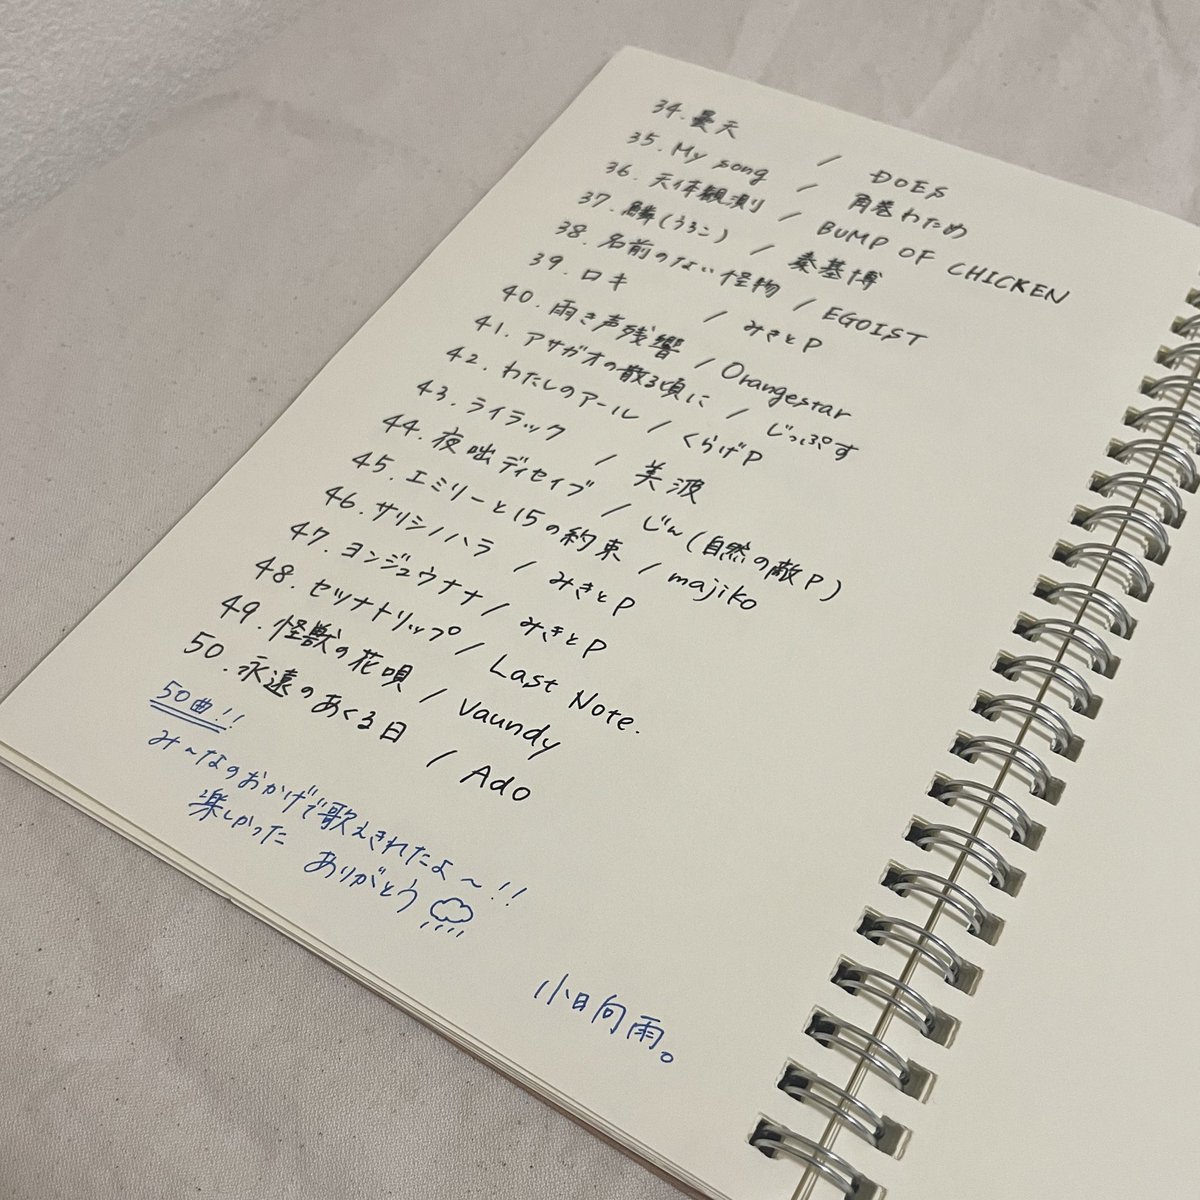 34.曇天 / DOES
35. My song / 角巻わため
36. 天体観測 / BUMP OF CHICKEN
37. 鱗(うろこ) / 秦基博
38. 名前のない怪物 / EGOIST
39. ロキ / みきとP
40. 雨き声残響 / Orangestar
41. アサガオの散る頃に / じっぷす
42. わたしのアール / くらげP
43. ライラック / 美波
44. 夜咄ディセイブ / じん(自然の敵P)
45. エミリーと15の約束 / majiko
46. サリシノハラ / みきとP
47. ヨンジュウナナ / みきとP
48. セツナトリップ / Last Note.
49. 怪獣の花唄 / Vaundy
50. 永遠のあくる日 / Ado
50曲!!
み〜なのおかげで歌えきれたよ〜!!
楽しかった ありがとう
小日向雨。